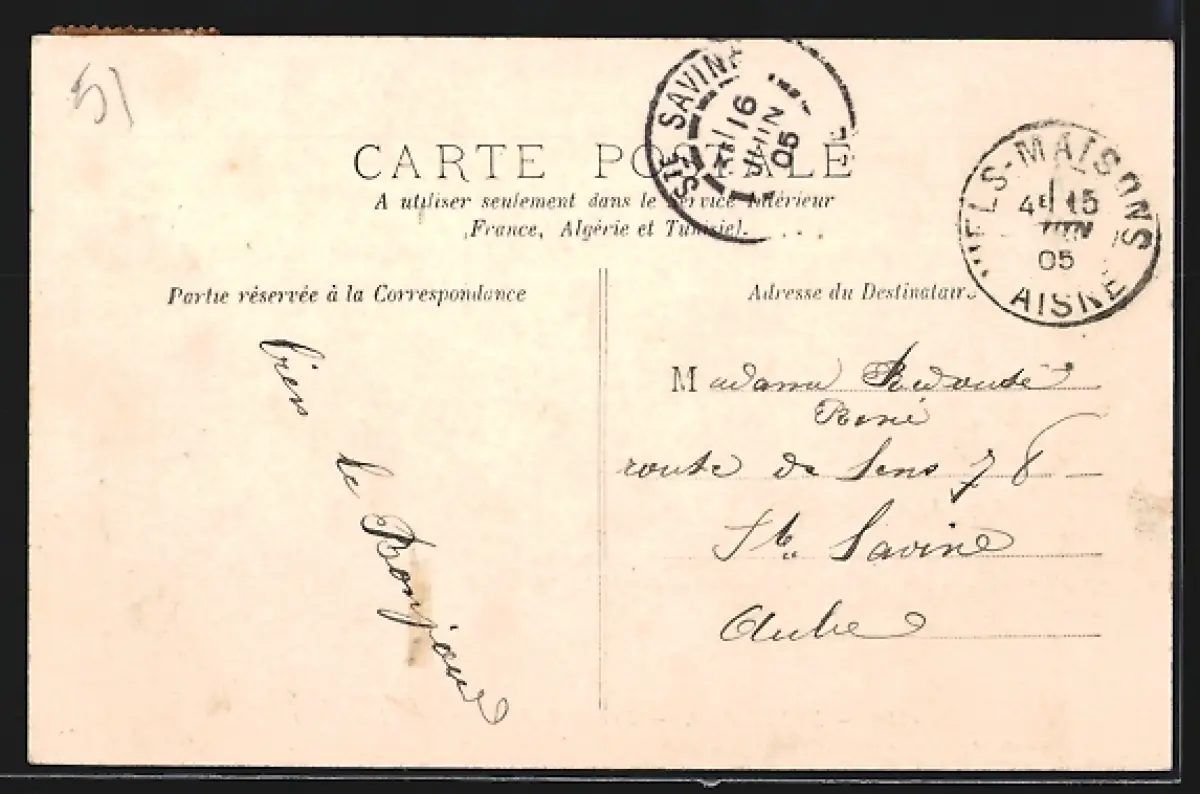 51
CARTE POSTALE
A utiliser seulement dans le Service Intérieur
(France, Algérie et Tunisie).
STE SAVINE
16
JUIN
05
ELS-MAISONS
4E 15
JUIN
05
AISNE
Partie réservée à la Correspondance
bien le Bonjour
Adresse du Destinataire
Madame Redouté
René
route de Sens 78
Ste Savine
Aube